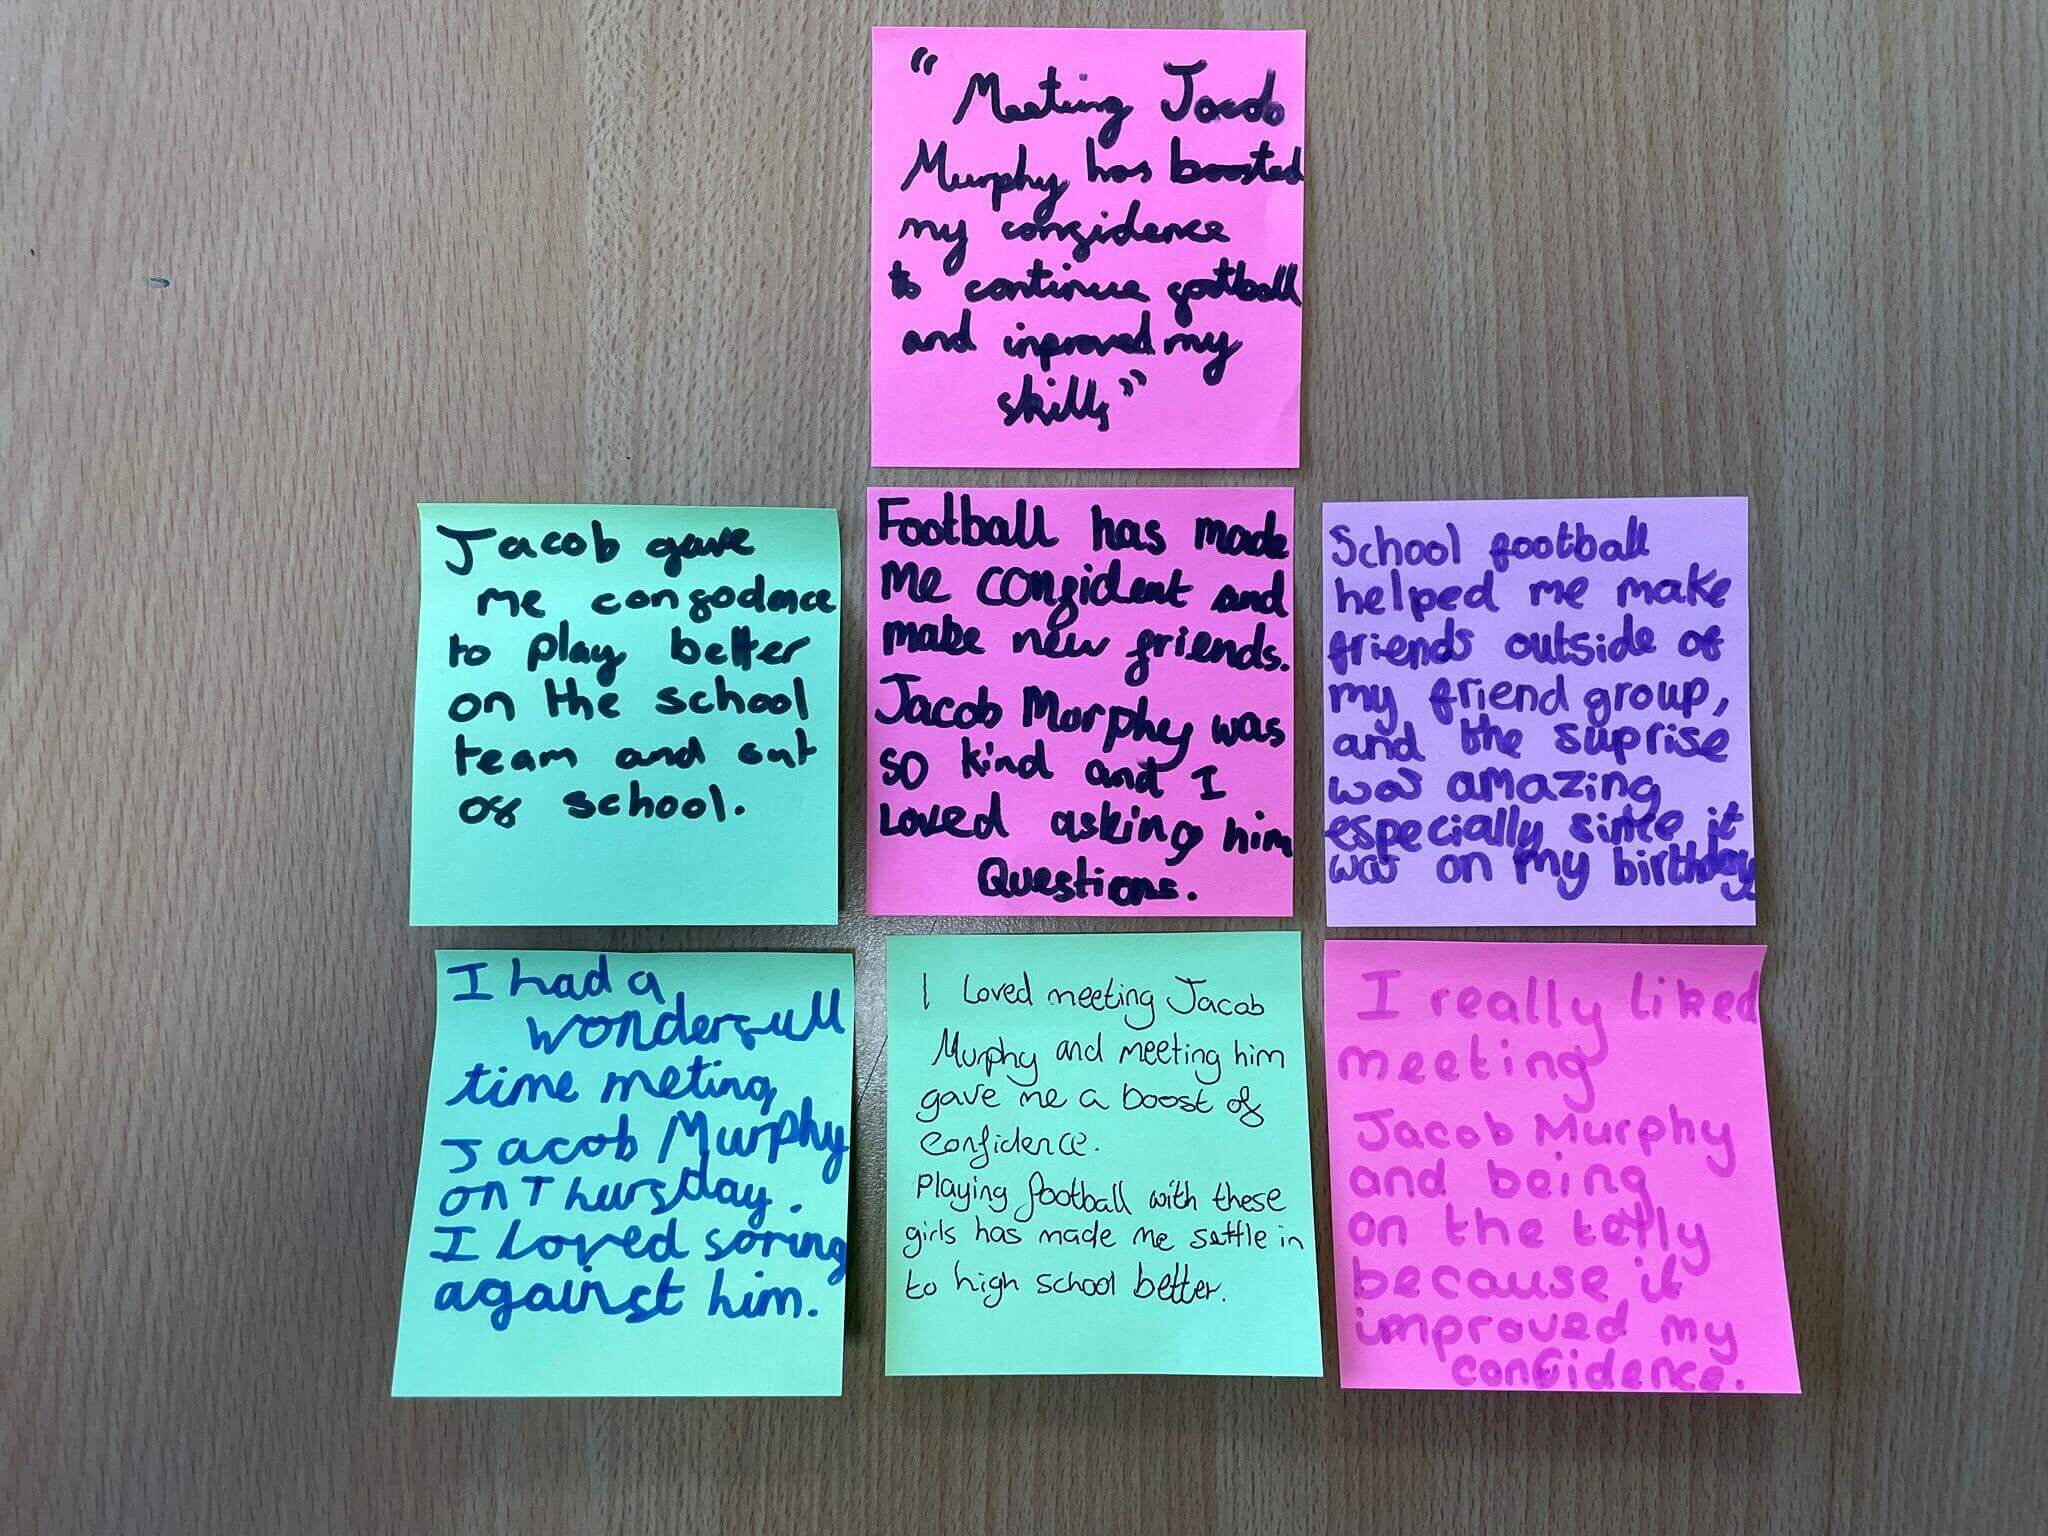 “Meeting Jacob
Murphy has boosted
my confidence
to continue football
and inproved my
skills”
Jacob gave
me confodence
to play better
on the school
team and out
of school.
Football has made
me confident and
make new friends.
Jacob Murphy was
so kind and I
Loved asking him
Questions.
School football
helped me make
friends outside of
my friend group,
and the suprise
was amazing
especially since it
was on my birthday
I had a
wonderfull
time meting
Jacob Murphy
on Thursday.
I Loved soring
against him.
I Loved meeting Jacob
Murphy and meeting him
gave me a boost of
confidence.
Playing football with these
girls has made me settle in
to high school better.
I really liked
meeting
Jacob Murphy
and being
on the telly
because it
improved my
confidence.